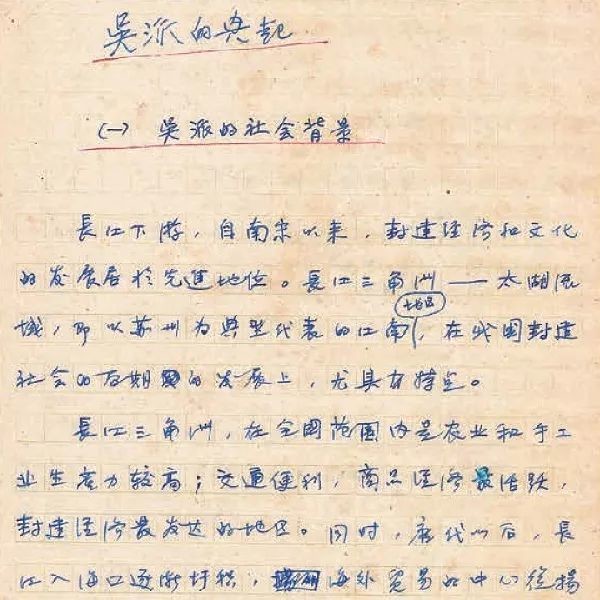 吳派的興起
(一) 吳派的社会背景
長江下游，自南宋以来，封建经济和文化
的发展居於先進地位。長江三角洲——太湖流
域，即以苏州为典型代表的江南地区，在我国封建
社会的后期的发展上，尤具有特点。
長江三角洲，在全国范围内是农业和手工
业生产力较高；交通便利，商品经济最活跃，
封建经济最发达的地区。同时，唐代以后，長
江入海口逐渐圩积，海外贸易的中心從揚